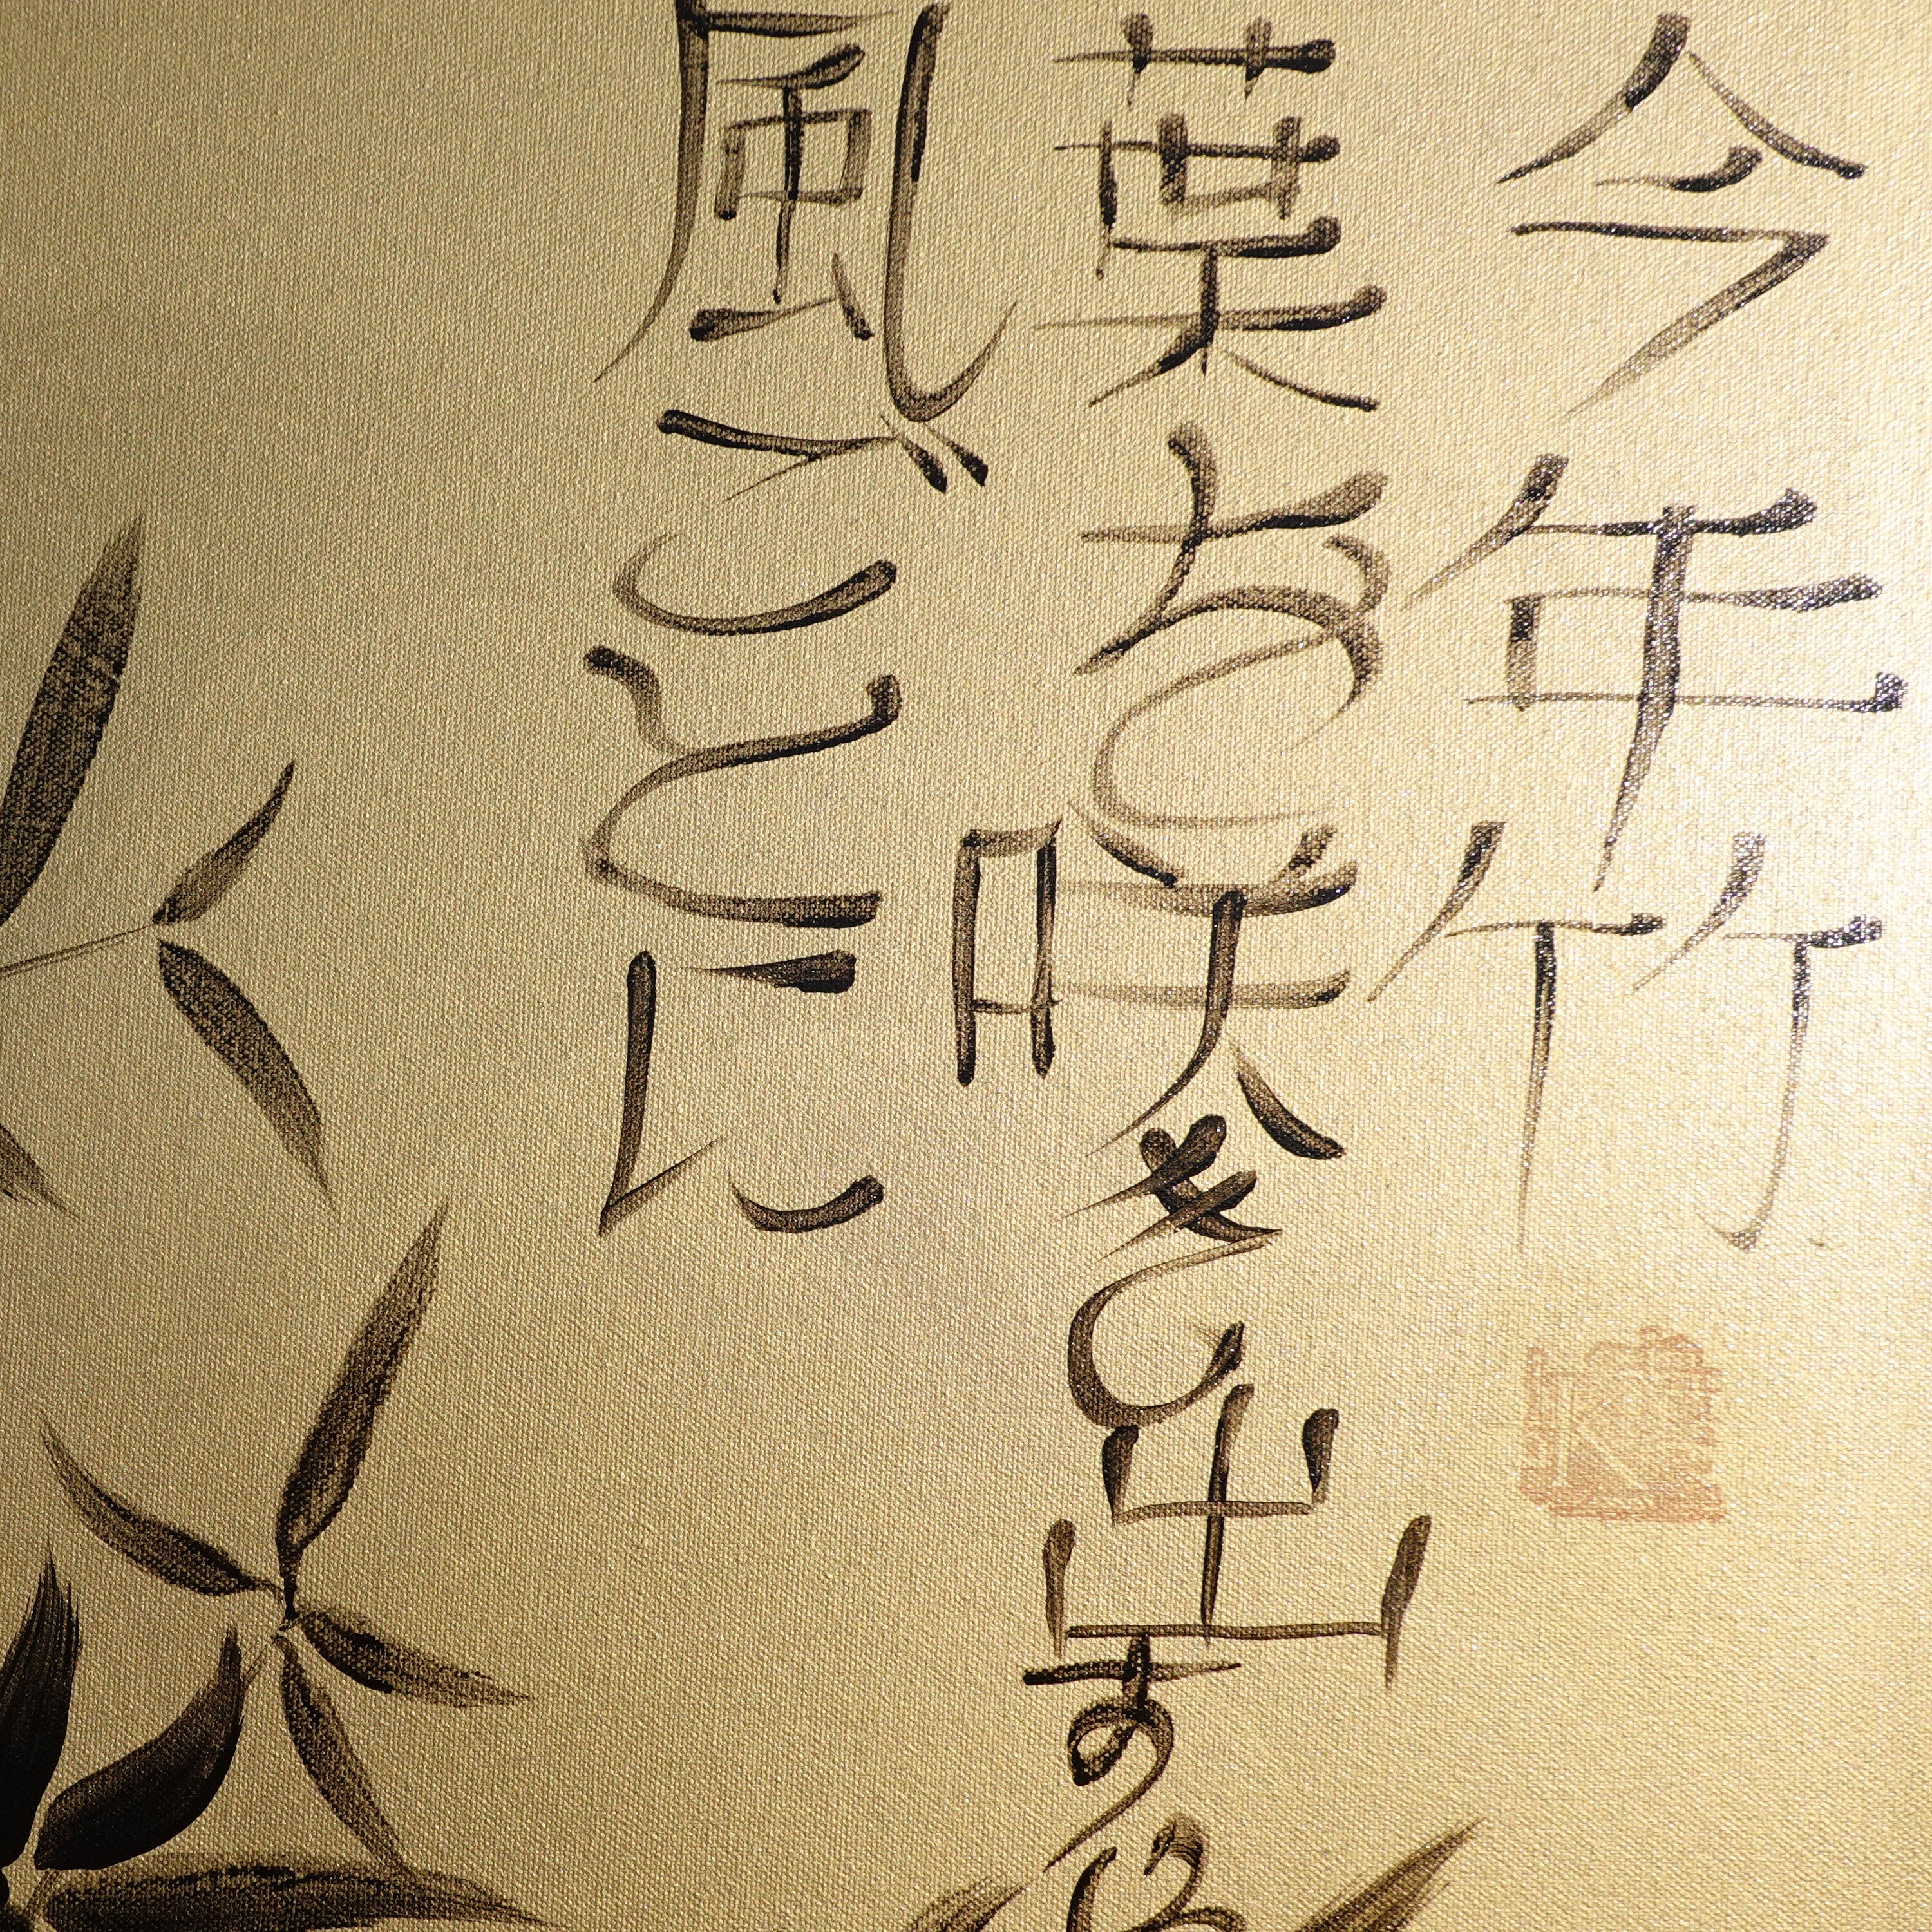 今年竹
葉を咲き出す
風ごとに